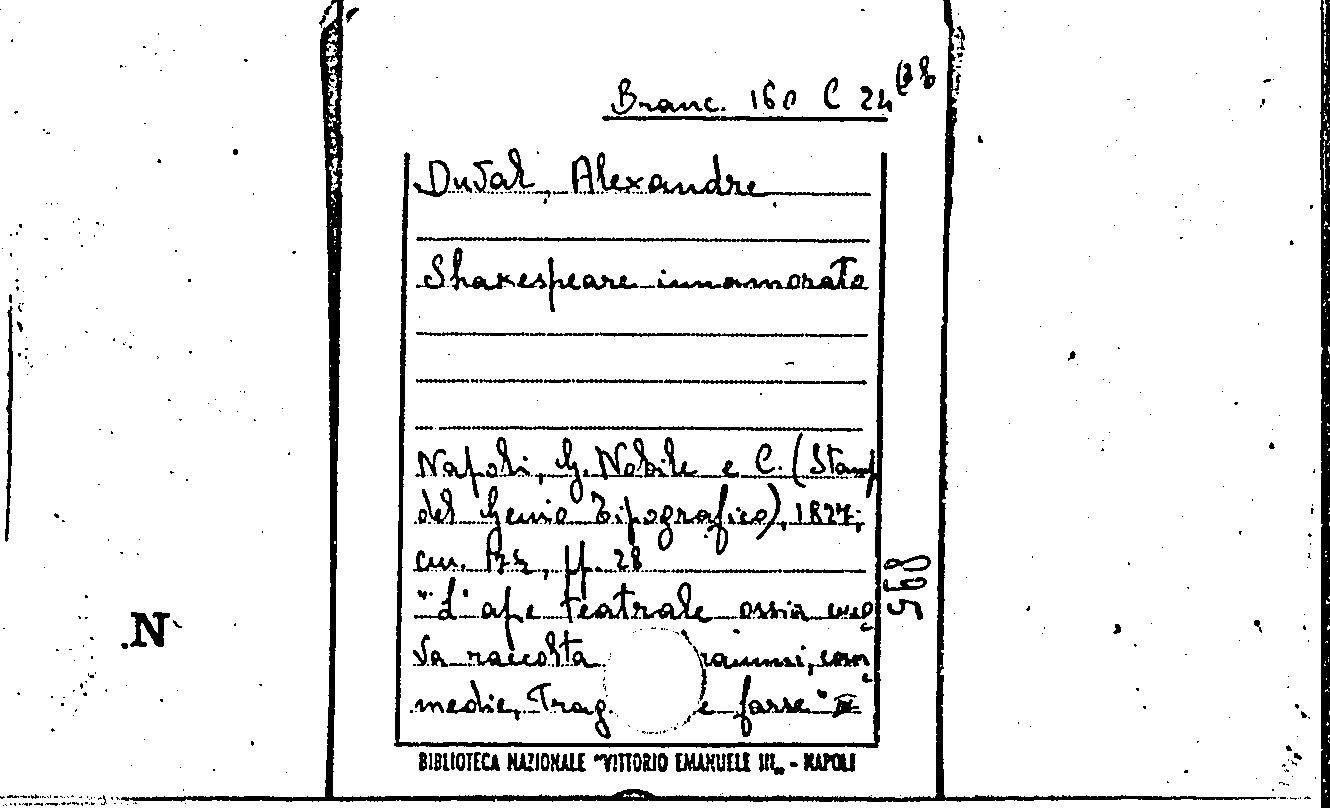 Branc. 160 C 24 (28
Duval, Alexandre
Shakespeare innamorato
Napoli, G. Nobile e C. (Stamp
del Genio Tipografico), 1827;
cm. , pp. 28
"L'ape teatrale ossia
va raccolta
medie, Trag. e farse"
568
N
BIBLIOTECA NAZIONALE "VITTORIO EMANUELE III„ - NAPOLI